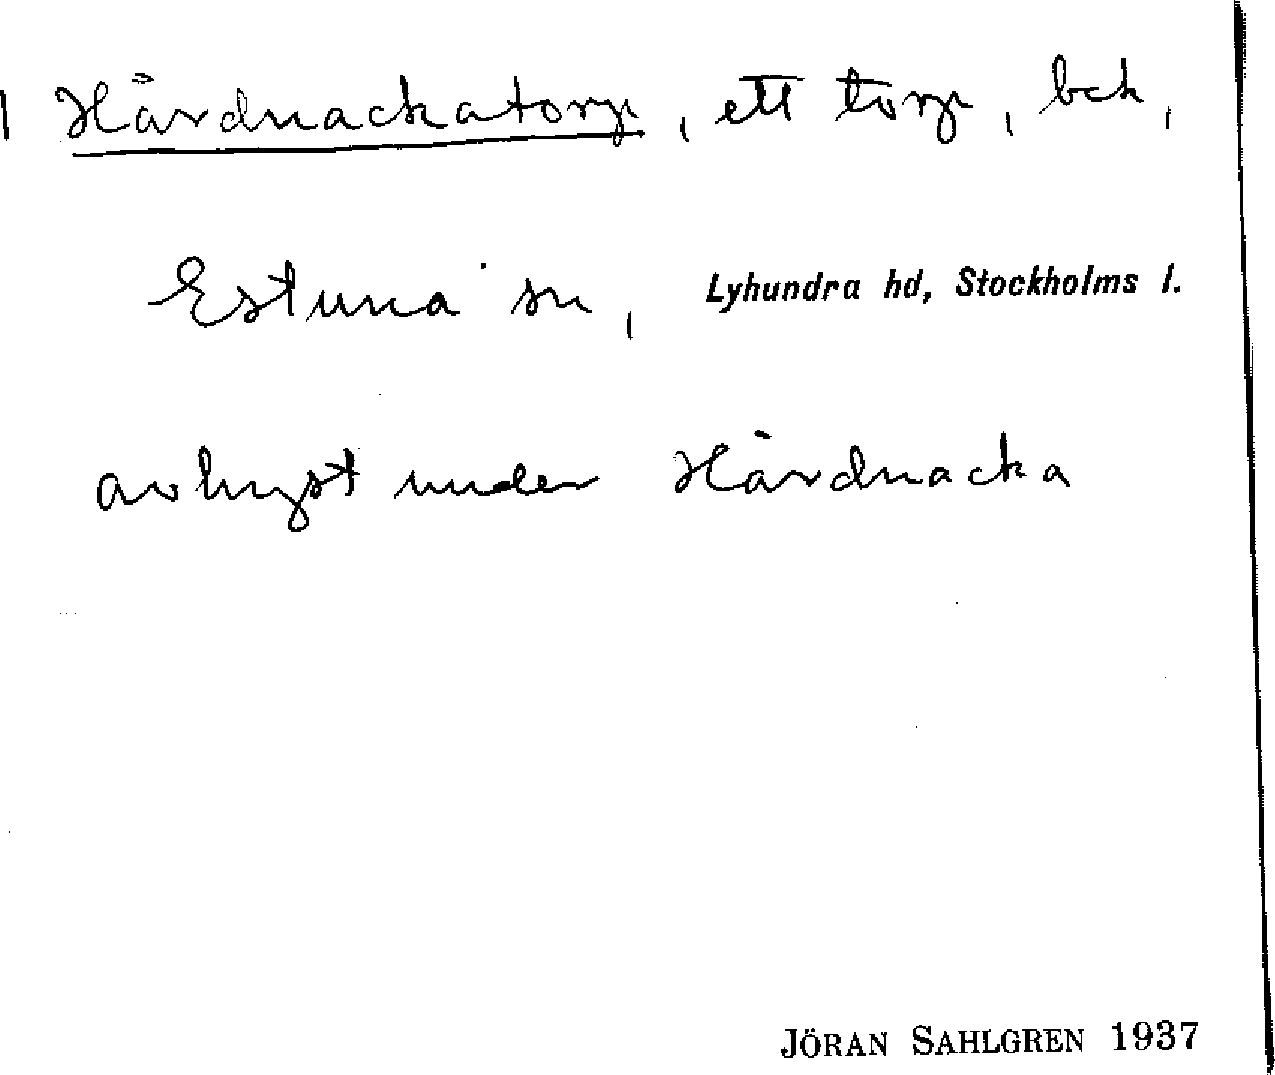 Hårdnackatorp, ett torp, bek,
Estuna sn, Lyhundra hd, Stockholms l.
avhyst under Hårdnacka
JÖRAN SAHLGREN 1937